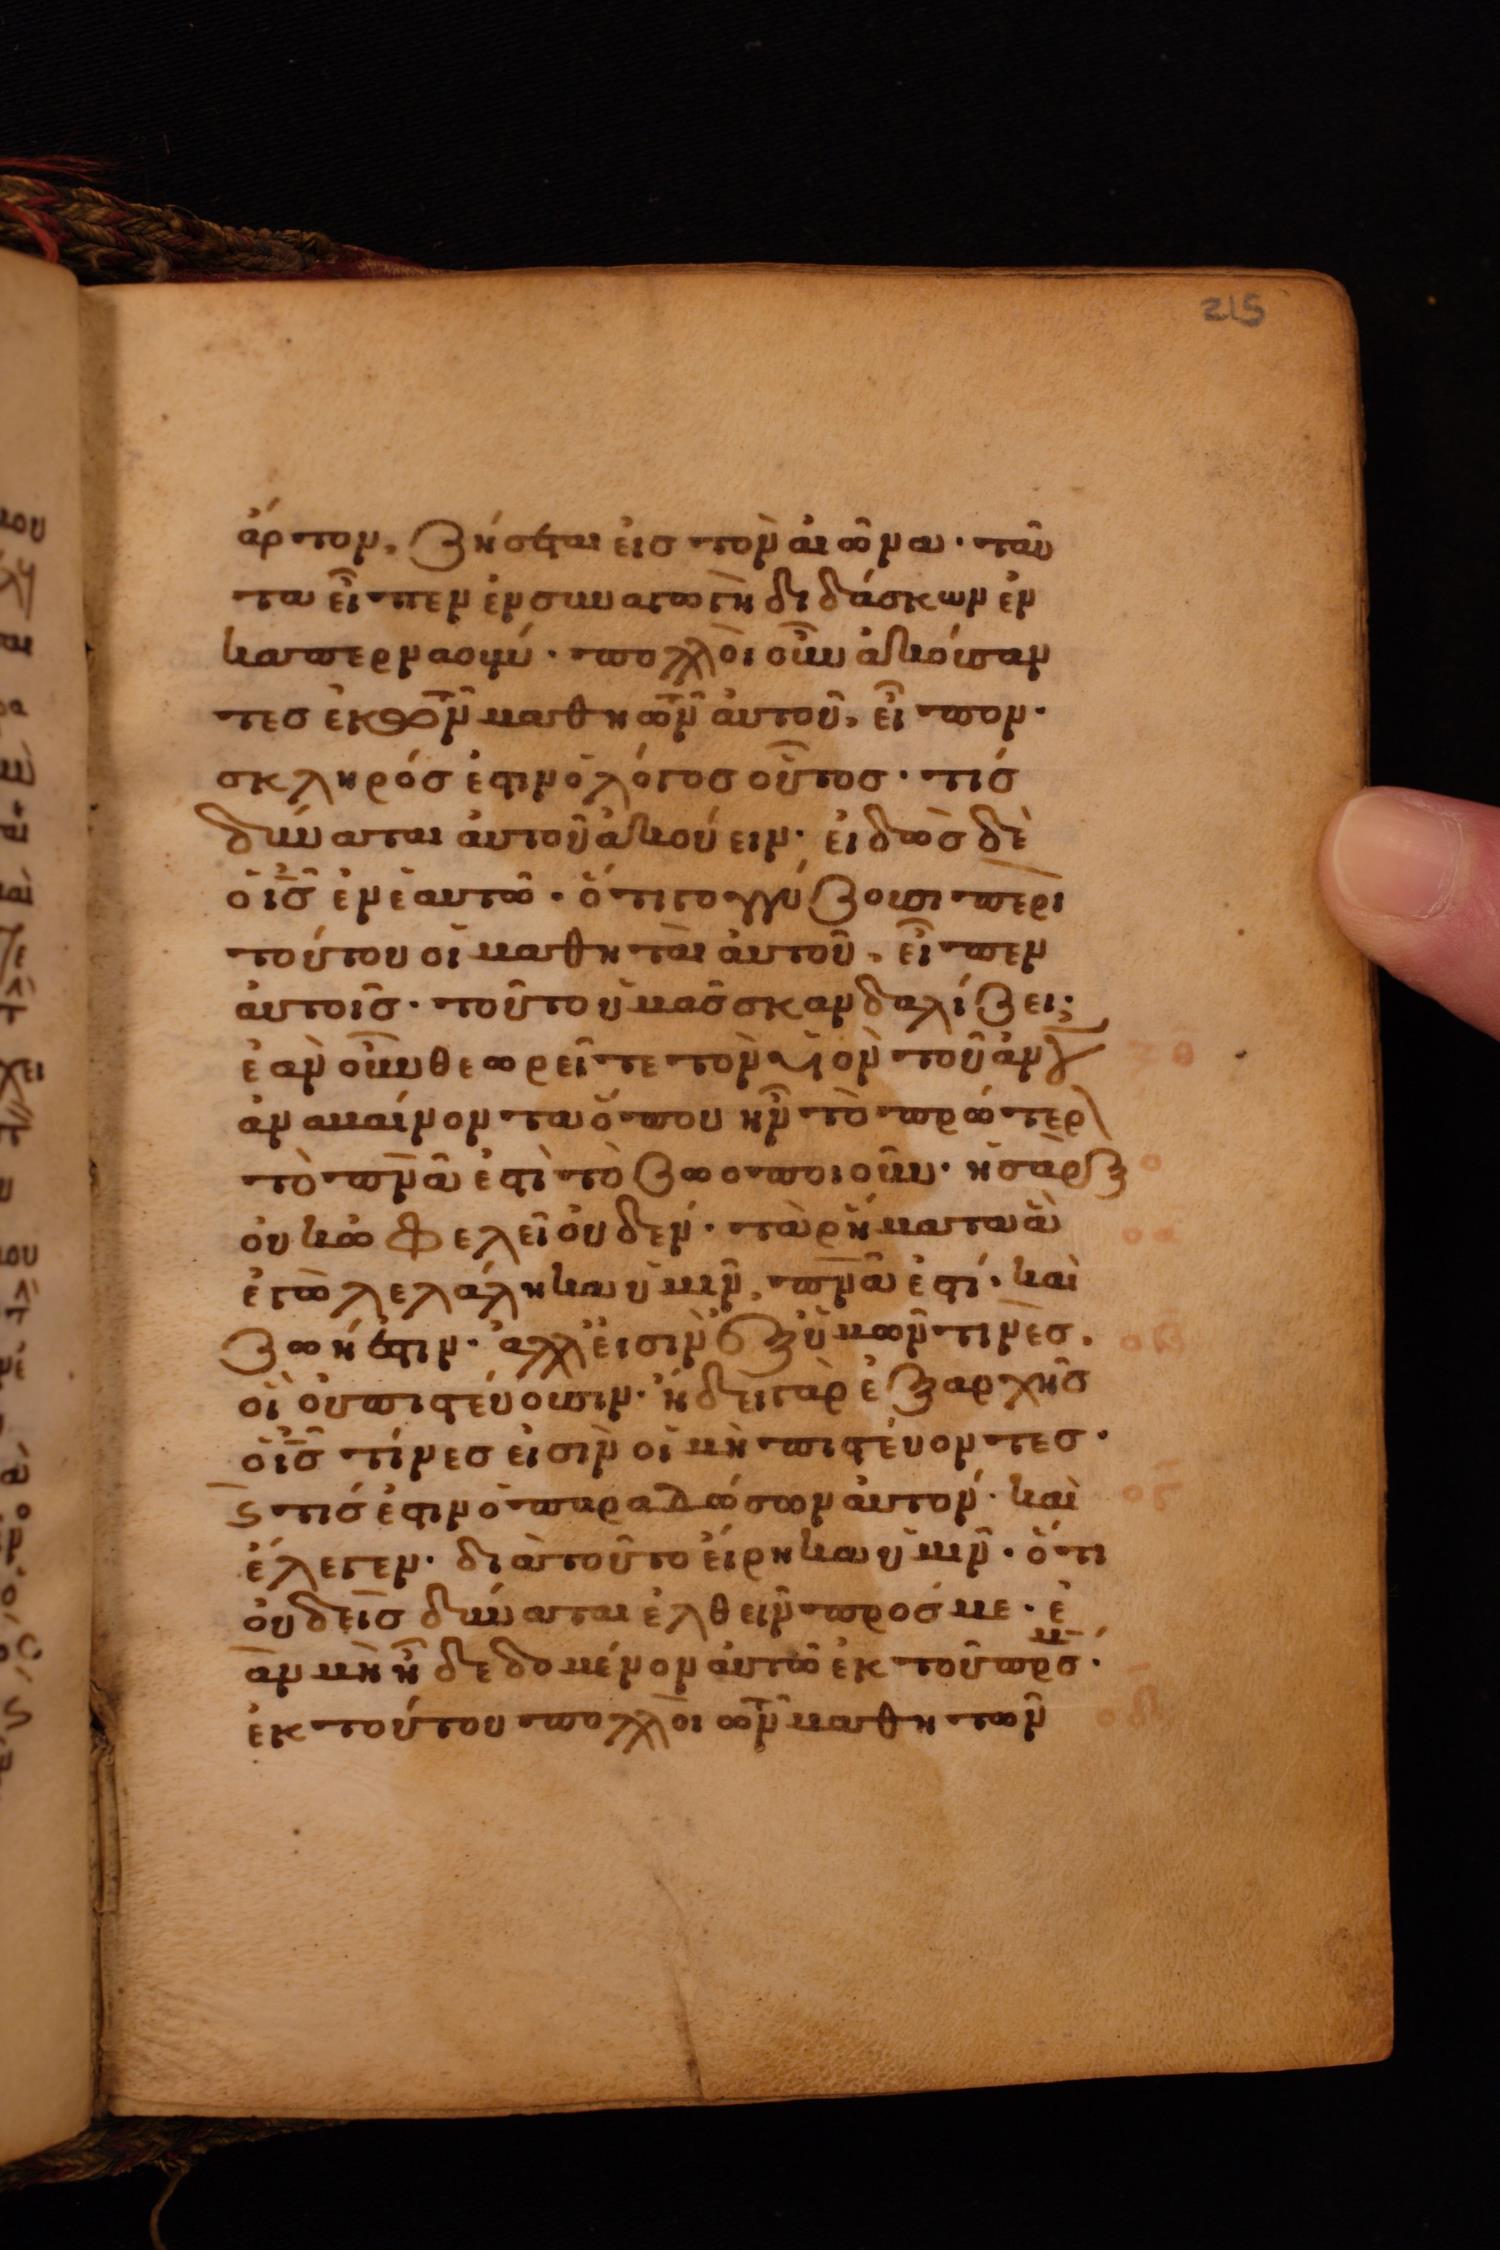 215
ἄρτον, ζήσεται εἰς τὸν αἰῶνα · ταῦ
τα εἶπεν ἐν συναγωγῆ διδάσκων ἐν
καπερναούμ · πολλοὶ οὖν ἀκούσαν
τες ἐκ τῶν μαθητῶν ἀυτοῦ, εἶπον ·
σκληρός ἐστιν ὁ λόγος οὗτος · τίς
δύναται ἀυτοῦ ἀκούειν · εἰδὼς δὲ
ὁ ι̅ς̅ ἐν ἑαυτῶ · ὅτι γογγύζουσι περὶ
τούτου οἱ μαθηταὶ ἀυτοῦ, εἶπεν
ἀυτοῖς · τοῦτο ὑμᾶς σκανδαλίζει;
ἐὰν οὖν θεωρεῖτε τὸν υἱὸν τοῦ ἀν̅ο̅υ̅
ἀναβαίνοντα ὅπου ἦν τὸ πρότερ
τὸ πν̅α̅ ἐστὶ τὸ ζωοποιοῦν · ἡ σὰρξ
οὐκ ὠφελεῖ οὐδέν · τὰ ῥήματα ἃ
ἐγὼ λελάληκα ὑμῖν, πν̅α̅ ἐστί · καὶ
ζωή ἐστιν · ἀλλ' εἰσὶν ἐξ ὑμῶν τινὲς,
οἳ οὐ πιστεύουσιν · ἤδει γὰρ ἐξ ἀρχῆς
ὁ ι̅ς̅ τίνες εἰσὶν οἱ μὴ πιστεύοντες ·
ϛ τίς ἐστιν ὁ παραδώσων ἀυτόν · καὶ
ἔλεγεν · διὰ τοῦτο εἴρηκα ὑμῖν · ὅτι
οὐδεὶς δύναται ἐλθεῖν πρός με · ἐ
ὰν μὴ ἦ δεδομένον ἀυτῶ ἐκ τοῦ πρ̅ς̅ μ ·
ἐκ τούτου πολλοὶ τῶν μαθητῶν